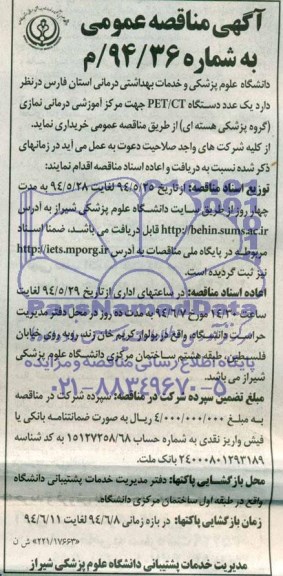 آگهی مناقصه عمومی
به شماره ۹۴/۳۶/م
دانشگاه علوم پزشکی و خدمات بهداشتی درمانی استان فارس درنظر
دارد یک عدد دستگاه PET/CT جهت مرکز آموزشی درمانی نمازی
(گروه پزشکی هسته ای) از طریق مناقصه عمومی خریداری نماید.
از کلیه شرکت های واجد صلاحیت دعوت به عمل می آید در زمانهای
ذکر شده نسبت به دریافت و اعاده اسناد مناقصه اقدام نمایند:
توزیع اسناد مناقصه: از تاریخ ۹۴/۵/۲۵ لغایت ۹۴/۵/۲۸ به مدت
چهار روز از طریق سایت دانشگاه علوم پزشکی شیراز به آدرس
http://behin.sums.ac.ir قابل دریافت می باشد. ضمنا اسناد
مربوطه در پایگاه ملی مناقصات به آدرس http://iets.mporg.ir
نیز ثبت گردیده است.
اعاده اسناد مناقصه: در ساعتهای اداری از تاریخ ۹۴/۵/۲۹ لغایت
ساعت ۱۴:۳۰ مورخ ۹۴/۶/۷ به مدت ده روز در محل دفتر مدیریت
حراست دانشگاه، واقع در بولوار کریم خان زند، روبه روی خیابان
فلسطین، طبقه هشتم ساختمان مرکزی دانشگاه علوم پزشکی
شیراز می باشد.
مبلغ تضمین سپرده شرکت در مناقصه: سپرده شرکت در مناقصه
به مبلغ ۴/۰۰۰/۰۰۰/۰۰۰ ریال به صورت ضمانتنامه بانکی یا
فیش واریز نقدی به شماره حساب ۱۵۱۲۷۲۵۸/۶۸ به کد شناسه
۲۴۰۰۰۸۰۱۲۹۳۱۸۹ بانک ملت.
محل بازگشایی پاکتها: دفتر مدیریت خدمات پشتیبانی دانشگاه
واقع در طبقه اول ساختمان مرکزی دانشگاه.
زمان بازگشایی پاکتها: در بازه زمانی ۹۴/۶/۸ لغایت ۹۴/۶/۱۱
۲۲۱/۱۷۶۶۳ ش ن
مدیریت خدمات پشتیبانی دانشگاه علوم پزشکی شیراز
پایگاه اطلاع رسانی مناقصه و مزایده
۰۲۱-۸۸۳۴۹۶۷۰-۵